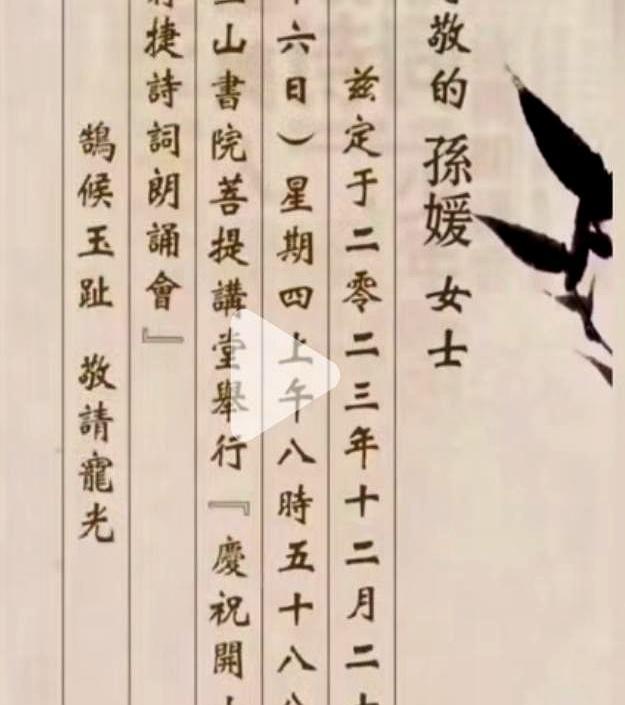 敬的 孫媛 女士
兹定于二零二三年十二月二
六日）星期四上午八時五十八
山書院菩提講堂舉行『慶祝開
捷詩詞朗誦會』
鵠候玉趾 敬請寵光